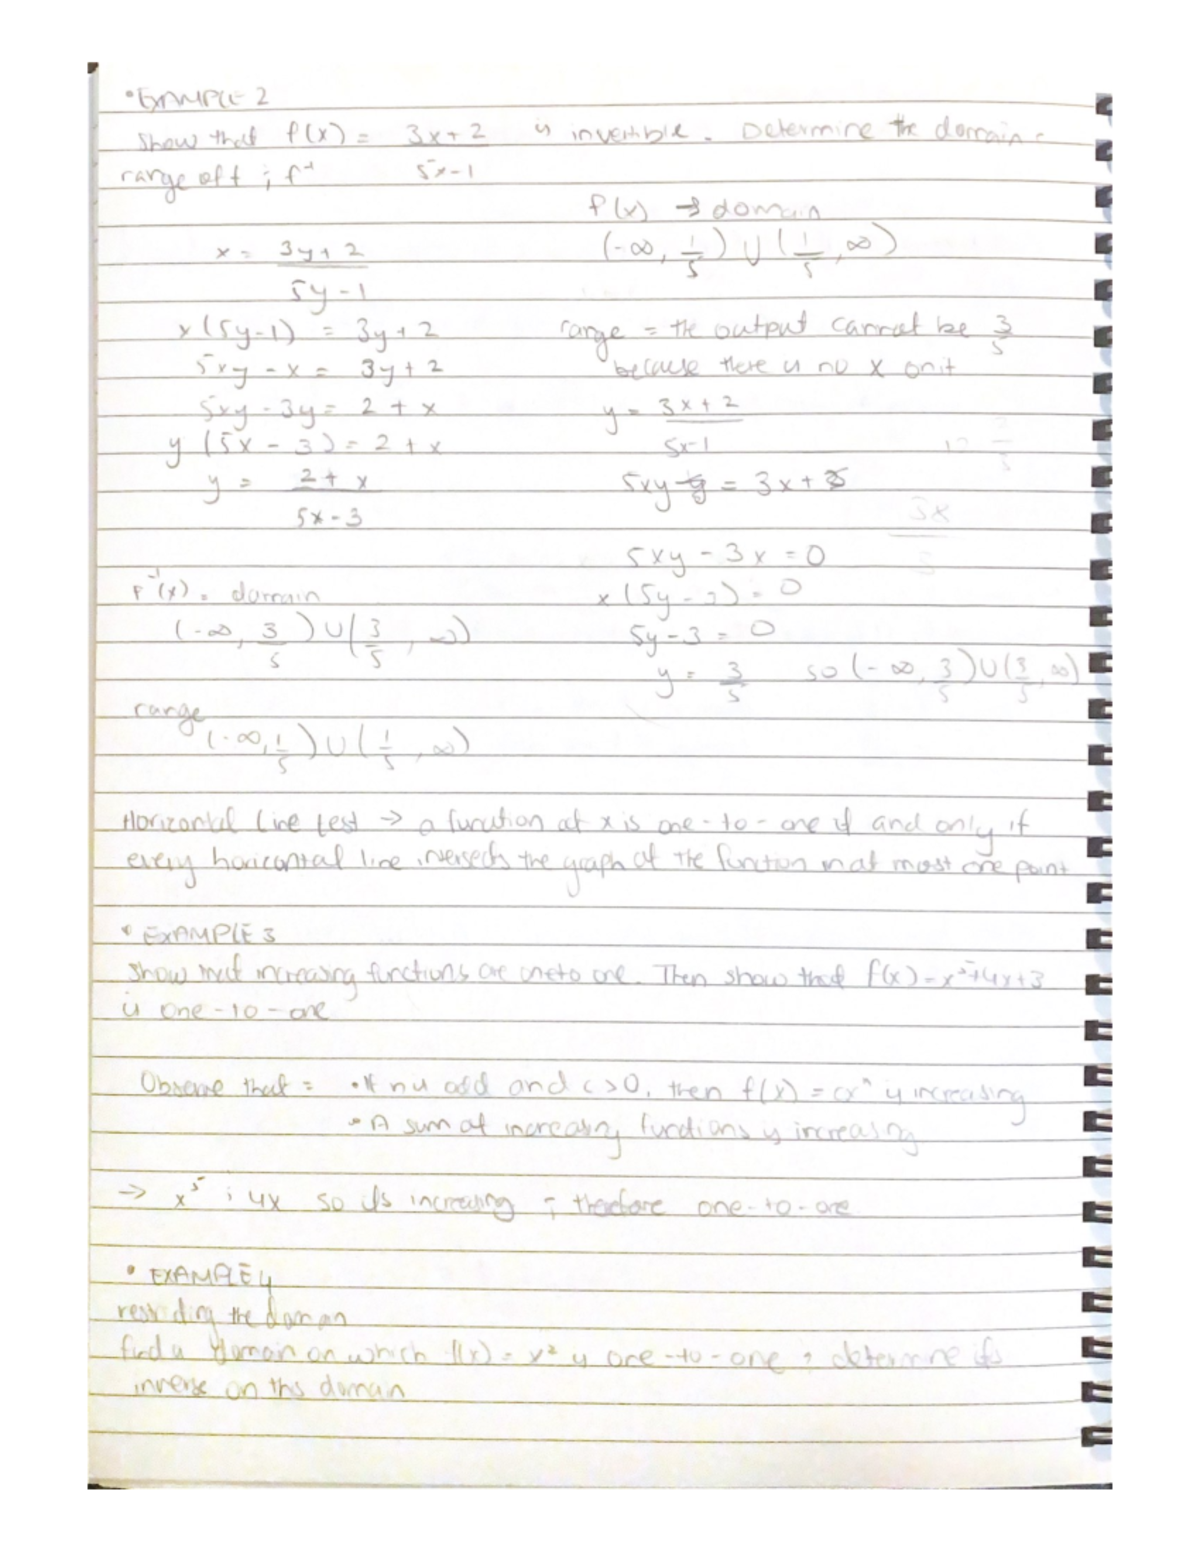 • EXAMPLE 2
Show that f(x) = 3x+2 is invertible. Determine the domain -
range of f ; f⁻¹ 5x-1
f(x) → domain
x = 3y+2 (-∞, 1/5) ∪ (1/5, ∞)
5y-1
x(5y-1) = 3y+2 range = the output cannot be 3/5
5xy - x = 3y+2 because there is no x on it
5xy - 3y = 2 + x y = 3x+2
y(5x - 3) = 2 + x 5x-1
y = 2 + x 5xy - y = 3x +
5x - 3
5xy - 3x = 0
f⁻¹(x) = domain x(5y - 3) = 0
(-∞, 3/5) ∪ (3/5, ∞) 5y - 3 = 0
y = 3/5 so (-∞, 3/5) ∪ (3/5, ∞)
range
(-∞, 1/5) ∪ (1/5, ∞)
Horizontal Line test → a function of x is one-to-one if and only if
every horizontal line intersects the graph of the function in at most one point
• EXAMPLE 3
Show that increasing functions are one to one. Then show that f(x) = x⁵+4x+3
is one-to-one
Observe that = • If n is odd and c>0, then f(x) = cxⁿ is increasing
• A sum of increasing functions is increasing
→ x⁵ ; 4x so its increasing ; therefore one-to-one
• EXAMPLE 4
restricting the domain
find a domain on which f(x) = x² is one-to-one ; determine its
inverse on this domain